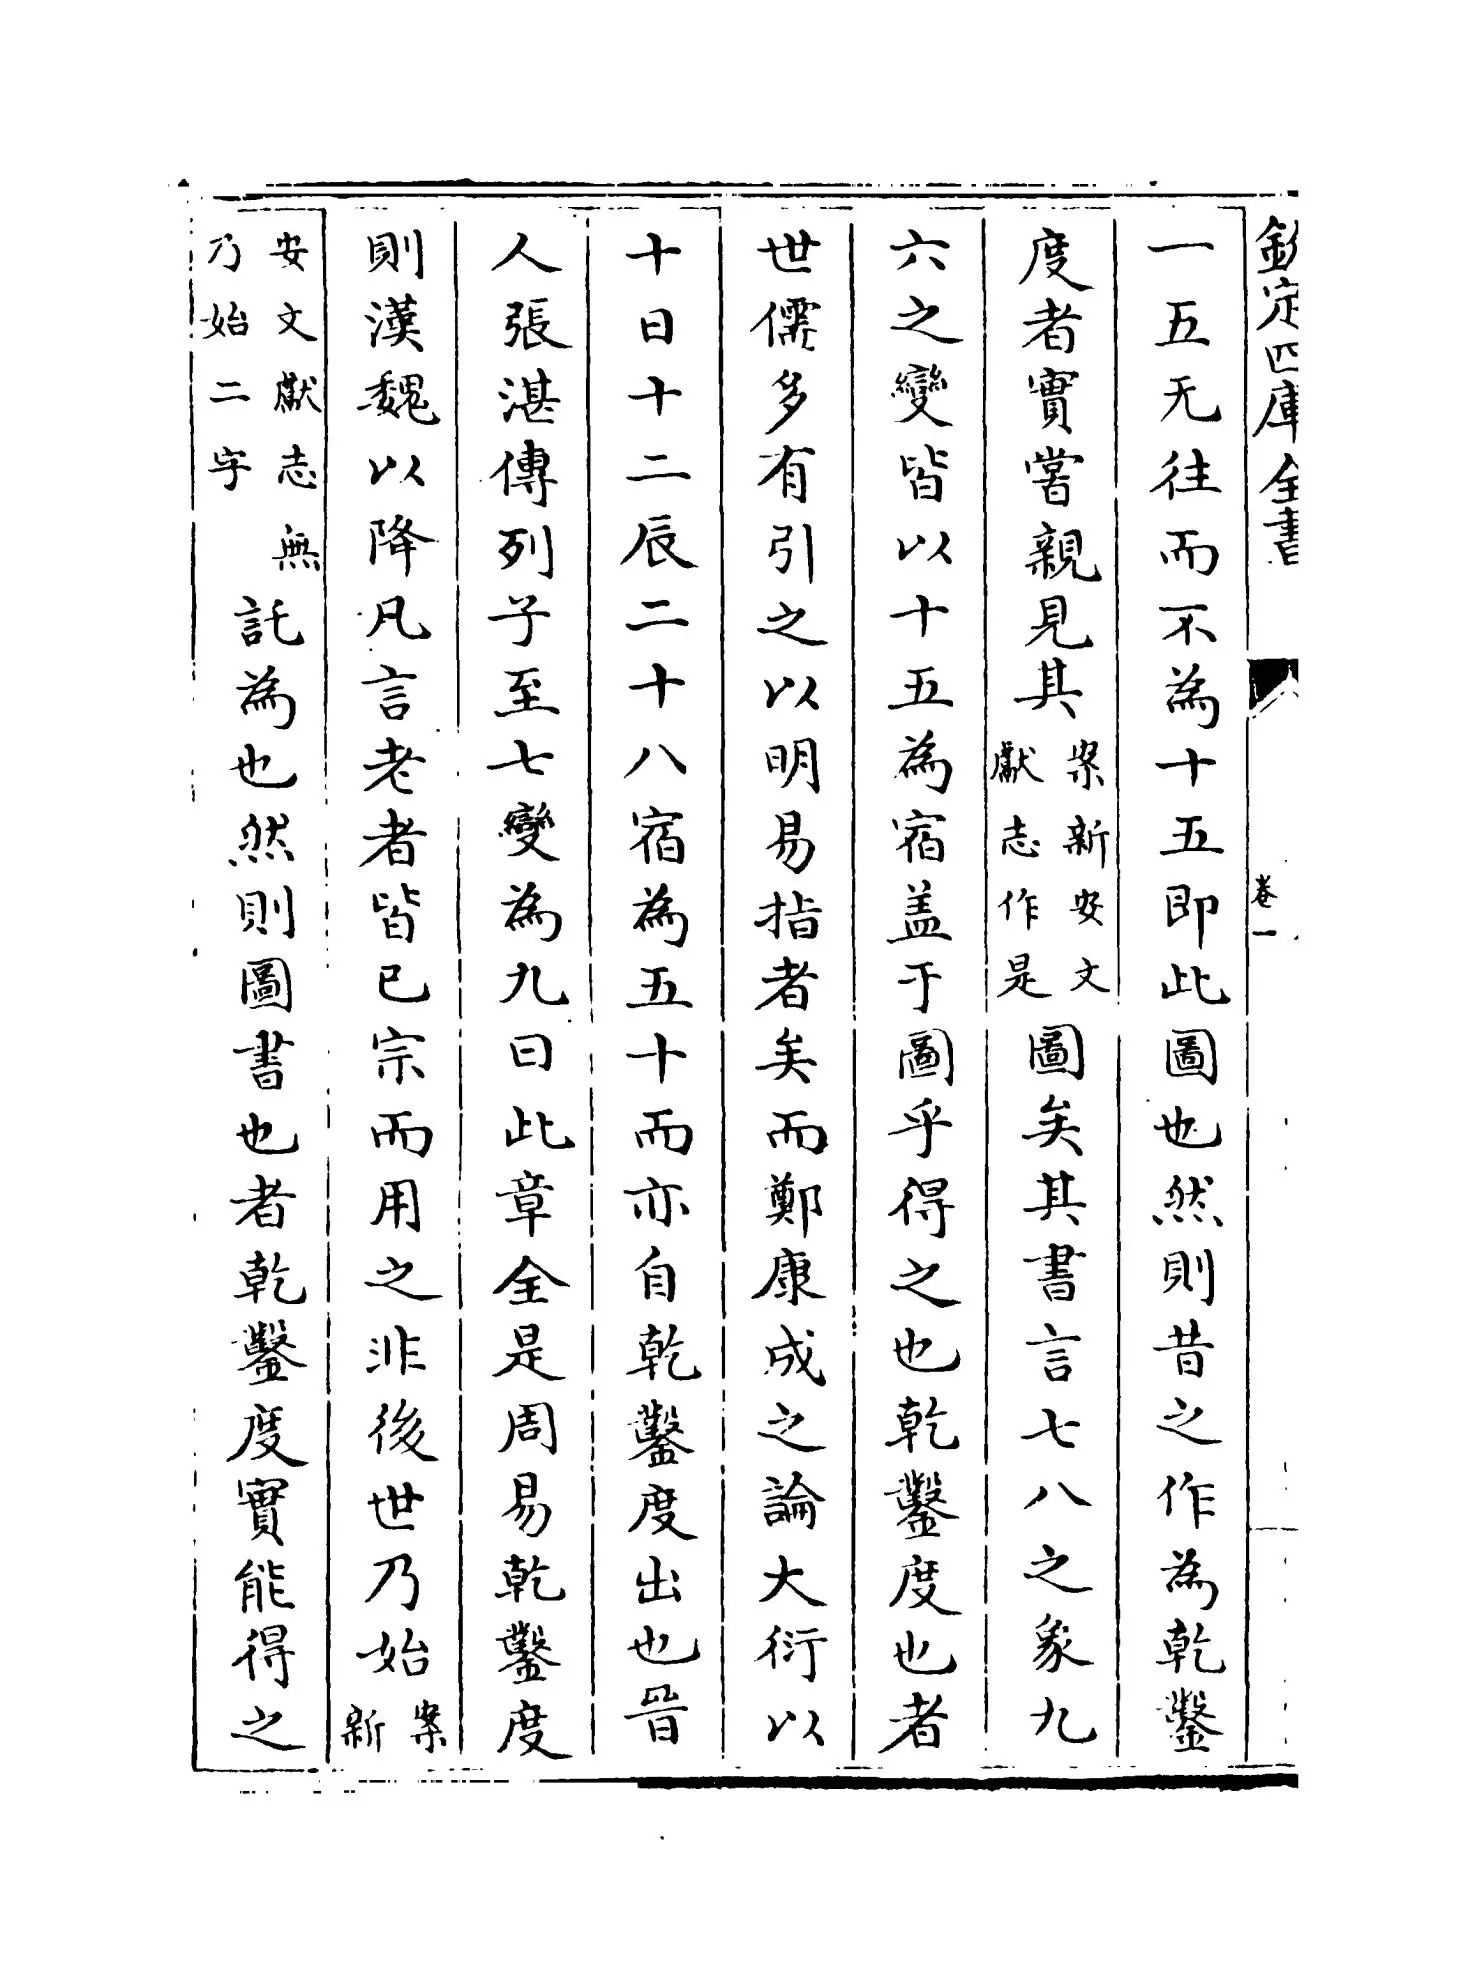 欽定四庫全書
卷一
一五无往而不為十五即此圖也然則昔之作為乾鑿
度者實嘗親見其案新安文獻志作是圖矣其書言七八之象九
六之變皆以十五為宿盖于圖乎得之也乾鑿度也者
世儒多有引之以明易指者矣而鄭康成之論大衍以
十日十二辰二十八宿為五十而亦自乾鑿度出也晉
人張湛傳列子至七變為九曰此章全是周易乾鑿度
則漢魏以降凡言老者皆已宗而用之非後世乃始案新
安文獻志無乃始二字託為也然則圖書也者乾鑿度實能得之